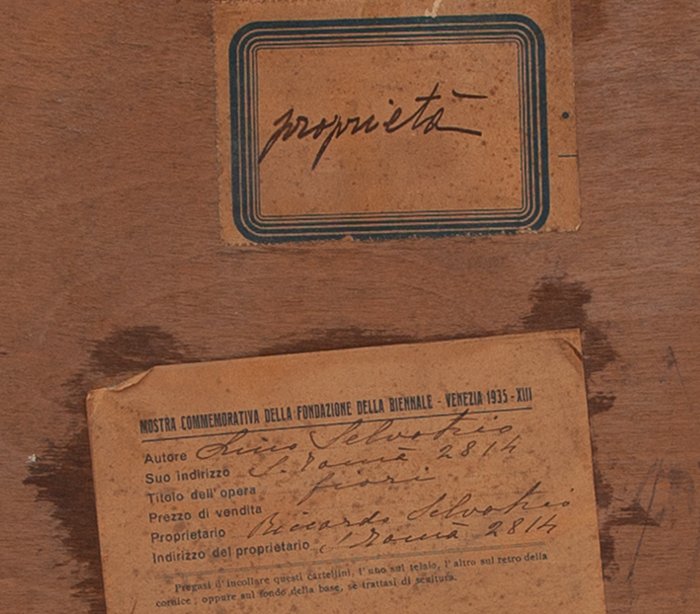 proprietà
MOSTRA COMMEMORATIVA DELLA FONDAZIONE DELLA BIENNALE - VENEZIA 1935 - XIII
Autore Lino Selvatico
Suo indirizzo S. Tomà 2814
Titolo dell'opera fiori
Prezzo di vendita
Proprietario Riccardo Selvatico
Indirizzo del proprietario S. Tomà 2814
Pregasi d'incollare questi cartellini, l'uno sul telaio, l'altro sul retro della
cornice; oppure sul fondo della base, se trattasi di scultura.